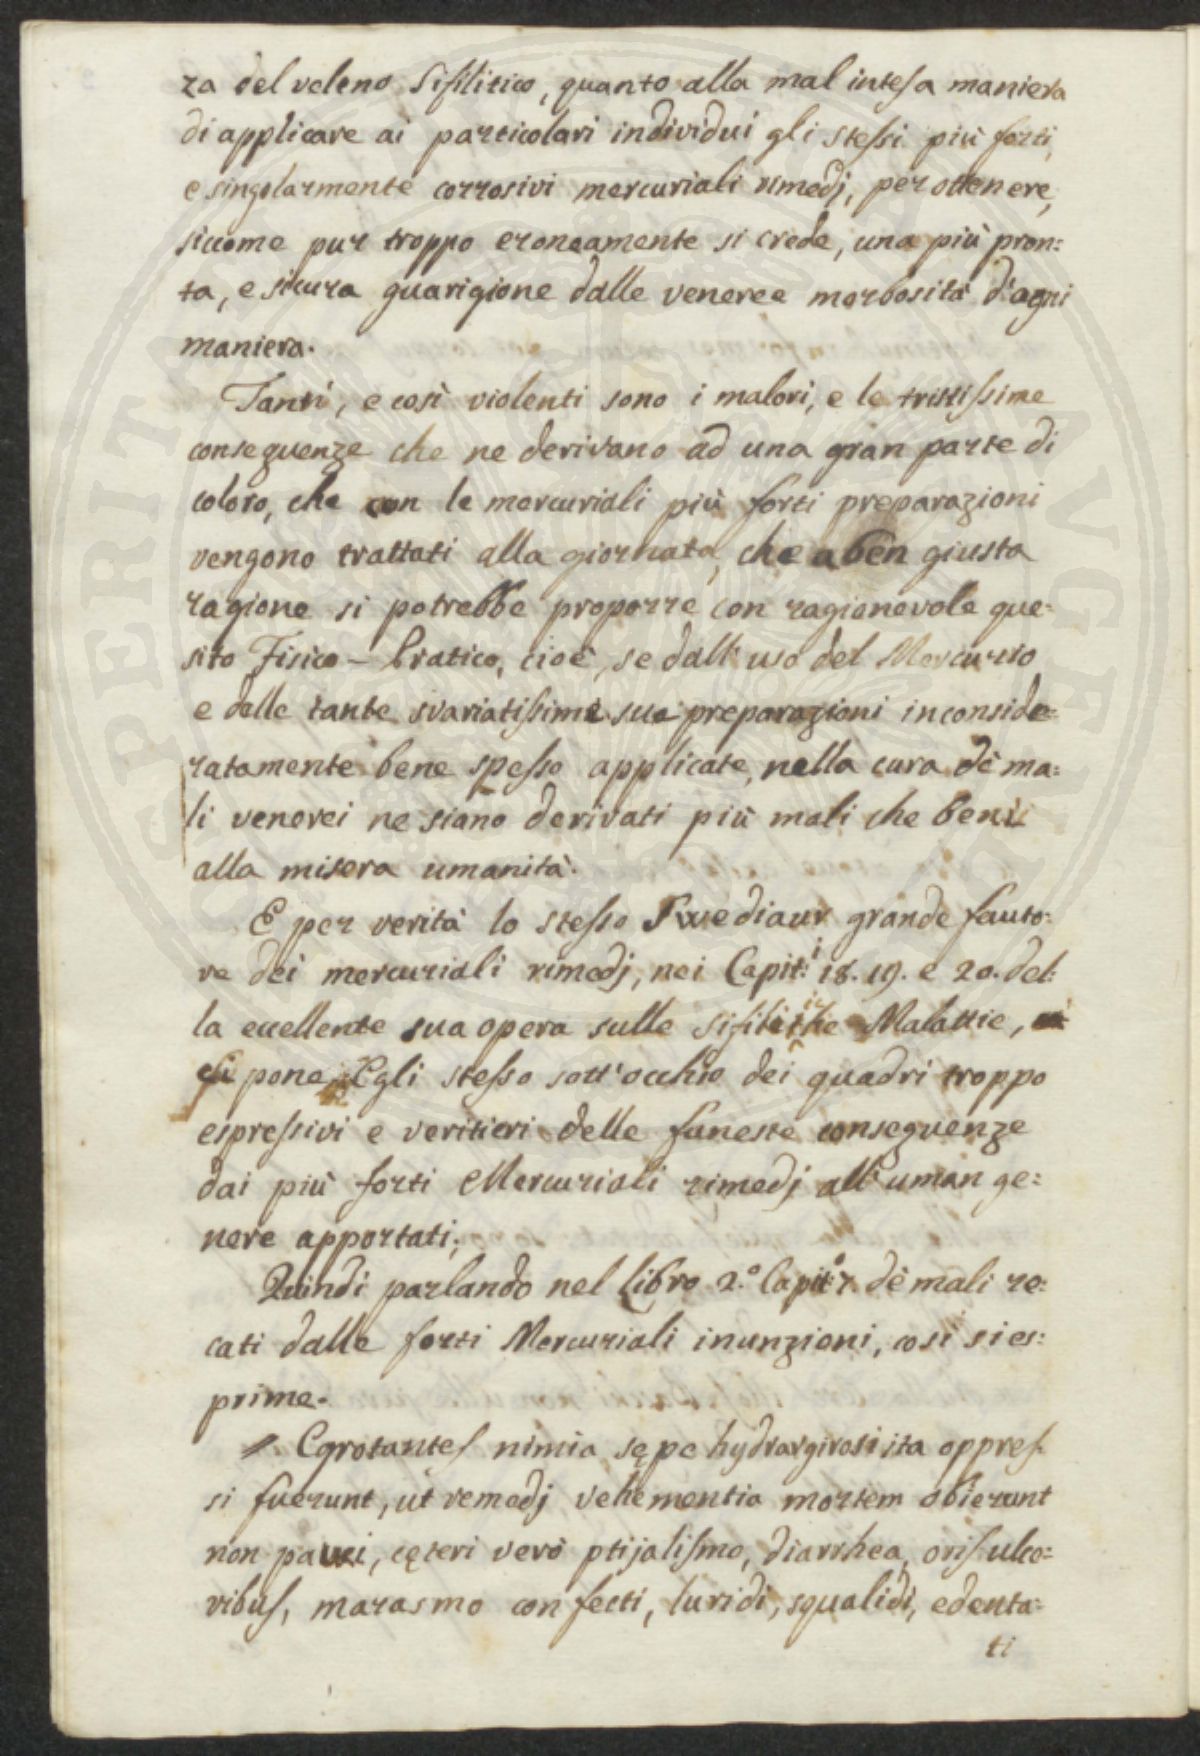 za del veleno Sifilitico, quanto alla mal intesa maniera
di applicare ai particolari individui gli stessi più forti,
e singolarmente corrosivi mercuriali rimedj, per ottenere,
siccome pur troppo eroneamente si crede, una più pron:
ta, e sicura guarigione dalle veneree morbosità d'ogni
maniera.
Tanti, e così violenti sono i malori, e le tristissime
conseguenze che ne derivano ad una gran parte di
coloro, che con le mercuriali più forti preparazioni
vengono trattati alla giornata, che a ben giusta
ragione si potrebbe proporre con ragionevole que:
sito Fisico - Pratico, cioè, se dall'uso del Mercurio
e delle tante svariatissime sue preparazioni inconside:
ratamente bene spesso applicate, nella cura dè ma:
li venerei ne siano derivati più mali che beni
alla misera umanità.
E per verità lo stesso Swediaur grande fauto:
re dei mercuriali rimedj, nei Capit:i 18. 19. e 20. del:
la eccellente sua opera sulle Sifilitiche Malattie,
ci pone Egli stesso sott'occhio dei quadri troppo
espressivi e veritieri delle funeste conseguenze
dai più forti Mercuriali rimedj all'uman ge:
nere apportati;
Quindi parlando nel Libro 2.° Capit:° 7. dè mali re:
cati dalle forti Mercuriali inunzioni, così si es:
prime.
// Egrotantes nimia sępe hydrargirosi ita oppres
si fuerunt, ut remedj vehementia mortem obierunt
non pauci, cęteri verò ptijalismo, diarrhea, oris ulce:
ribus, marasmo confecti, luridi, squalidi, edenta:
ti